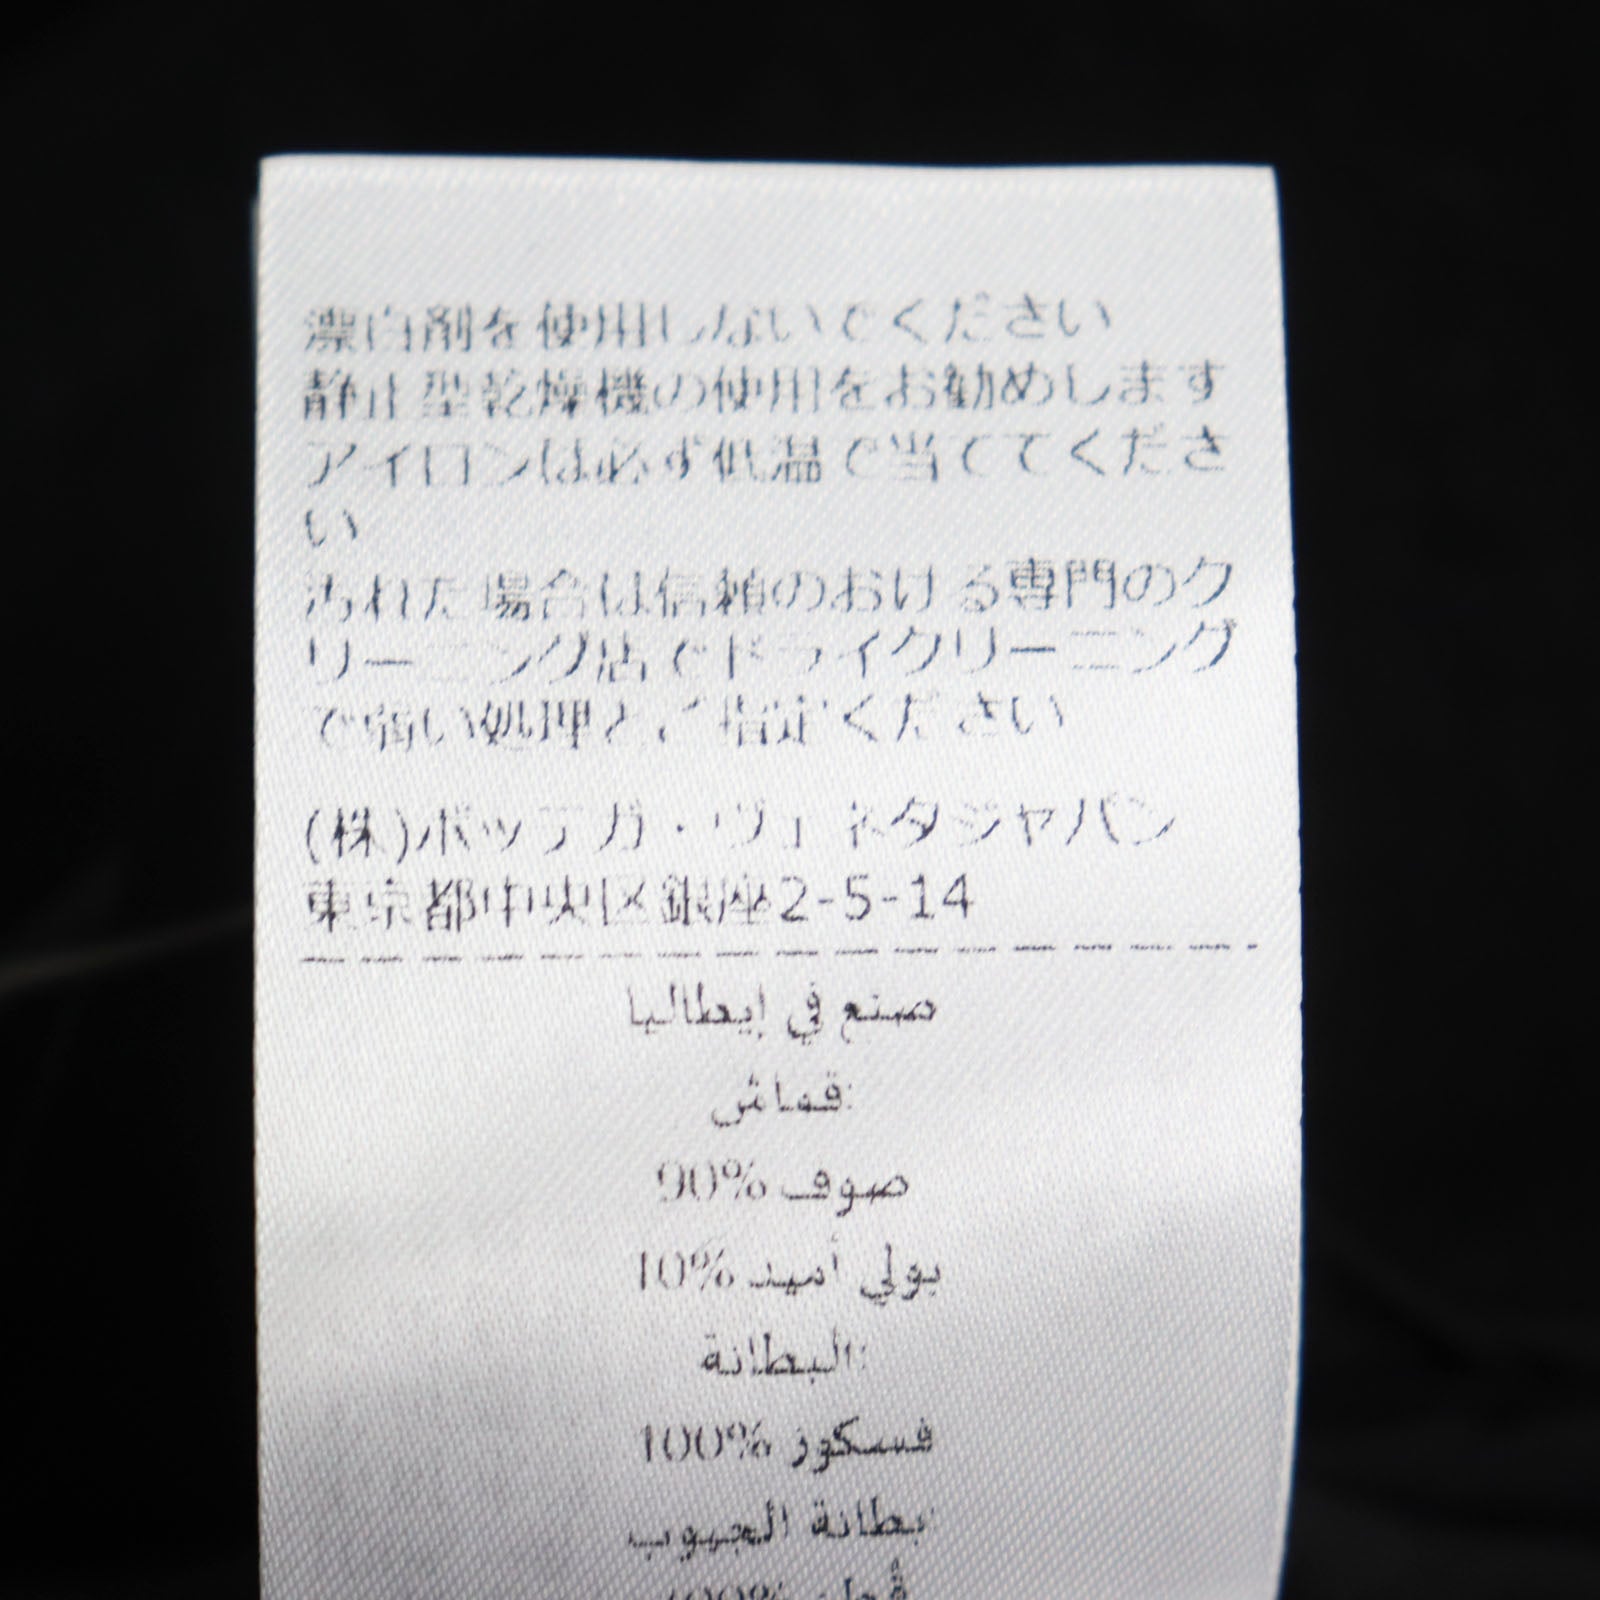 漂白剤を使用しないでください
静止型乾燥機の使用をお勧めします
アイロンは必ず低温で当ててくださ
い
汚れた場合は信頼のおける専門のク
リーニング店でドライクリーニング
で弱い処理とご指定ください
(株)ボッテガ・ヴェネタジャパン
東京都中央区銀座2-5-14
صنع في إيطاليا
قماش:
90% صوف
10% بولي أميد
البطانة:
100% فسكوز
بطانة الجيوب:
100% قطن